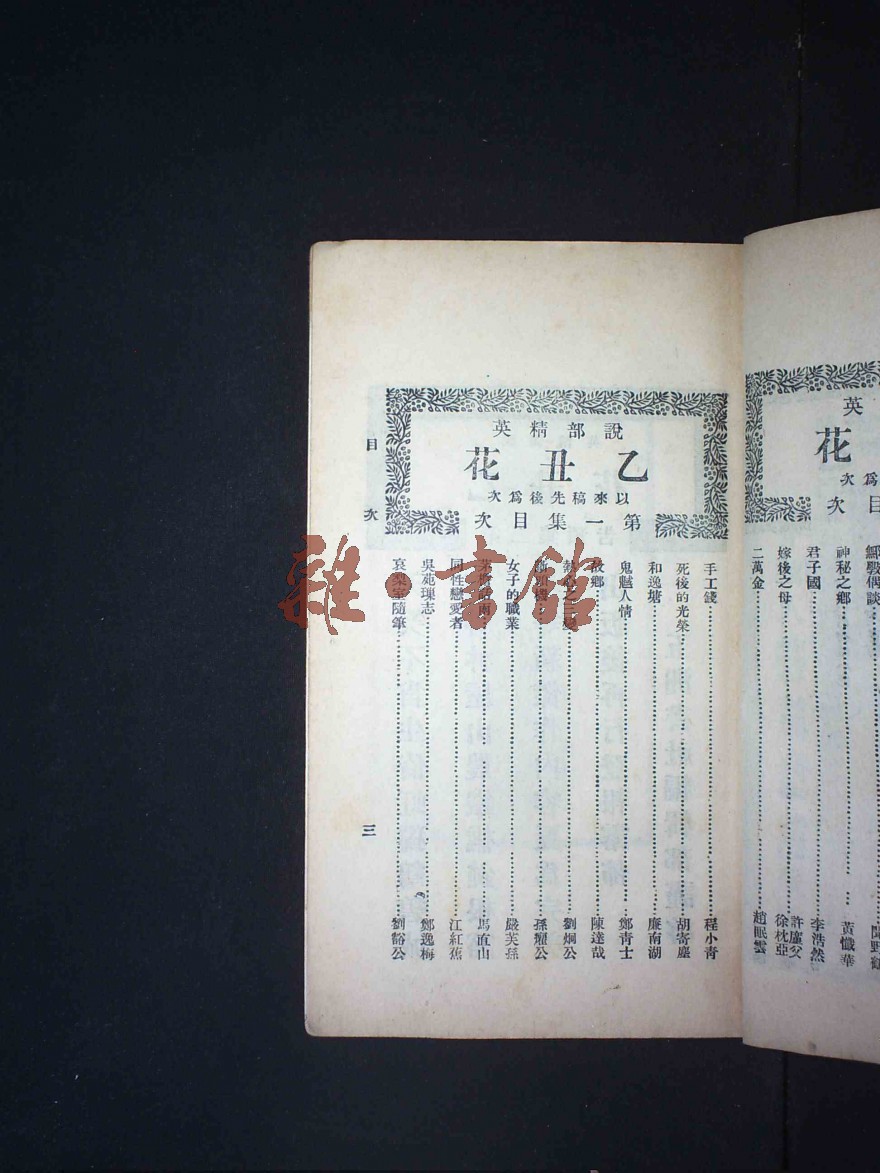 英
花
次為
目次
鄦戰偶談
神秘之鄉 黃懺華
君子國 李浩然
嫁後之母 許廑父 徐枕亞
二萬金 趙眠雲
說部精英
乙丑花
以來稿先後為次
第一集目次
手工錢 程小青
死後的光榮 胡寄塵
和逸塘 廉南湖
鬼魅人情 鄭青士
故鄉 陳達哉
劉炯公
孫癯公
女子的職業 嚴芙孫
馬直山
同性戀愛者 江紅蕉
吳苑瑮志 鄭逸梅
哀梨室隨筆 劉豁公
目次
三
雜·書館